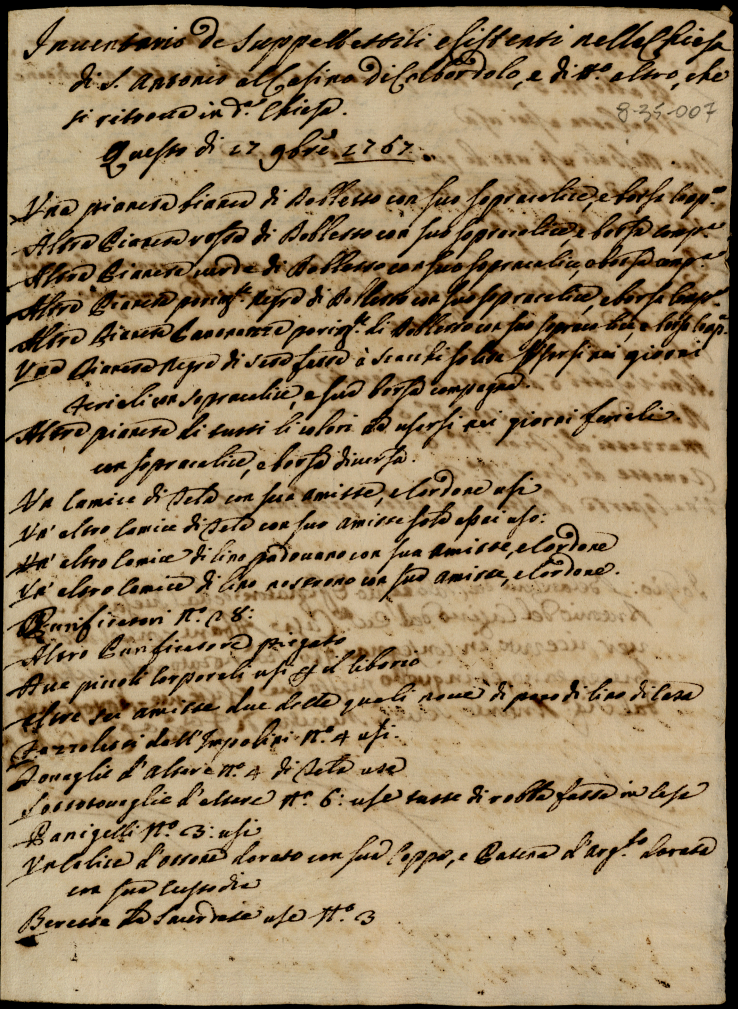 Inventario de Suppelletili esistenti nella Chiesa
di S. Antonio al Casino di Colbordolo, e di tt.o altro, che
si ritrova in d.a Chiesa.
8-35-007
Questo dì 17 9bre 1767.
Una pianeta bianca di Rolletto con suo sopracalice, e borsa comp.a
Altra Pianeta rossa di Rolletto con suo sopracalice, e borsa comp.a
Altra Pianeta verde di Rolletto con suo sopracalice, e borsa comp.a
Altra Pianeta negra di Rolletto con suo sopracalice, e borsa comp.a
Altra Pianeta Pavonazza di Rolletto con suo sopracalice, e borsa comp.a
Una Pianeta Negra di seta fatta à scacchi solita usarsi nei giorni
feriali con sopracalice, e sua borsa compagna
Altra pianeta di tutti li colori da usarsi nei giorni feriali
con sopracalice, e borsa diversa.
Un Camice di Tela con sua amitte, e Cordone usi
Un' altro Camice di Tela con suo amitte solo assai uso:
Un' altro Camice di lino padovano con sua amitte, e Cordone
Un' altro Camice di lino nostrano con sua amitte, e Cordone.
Purificatori N.o 28:
Altro Purificatore piegato
Due piccoli Corporali usi il Ciborio
Altre sei amitte due delle quali nove di pano di lino di Casa
Fazzoletti dell'Impolini N.o 4 usi.
Tovaglie d'Altare N.o 4 di Tela usa
Sottotovaglie d'altare N.o 6: use tutte di robba fatta in Casa
Panigelli N.o 3: usi
Un Calice d'ottone dorato con sua Coppa, e Patena d'Arg.to dorata
con sua Custodia
Berette da Sacerdote use N.o 3